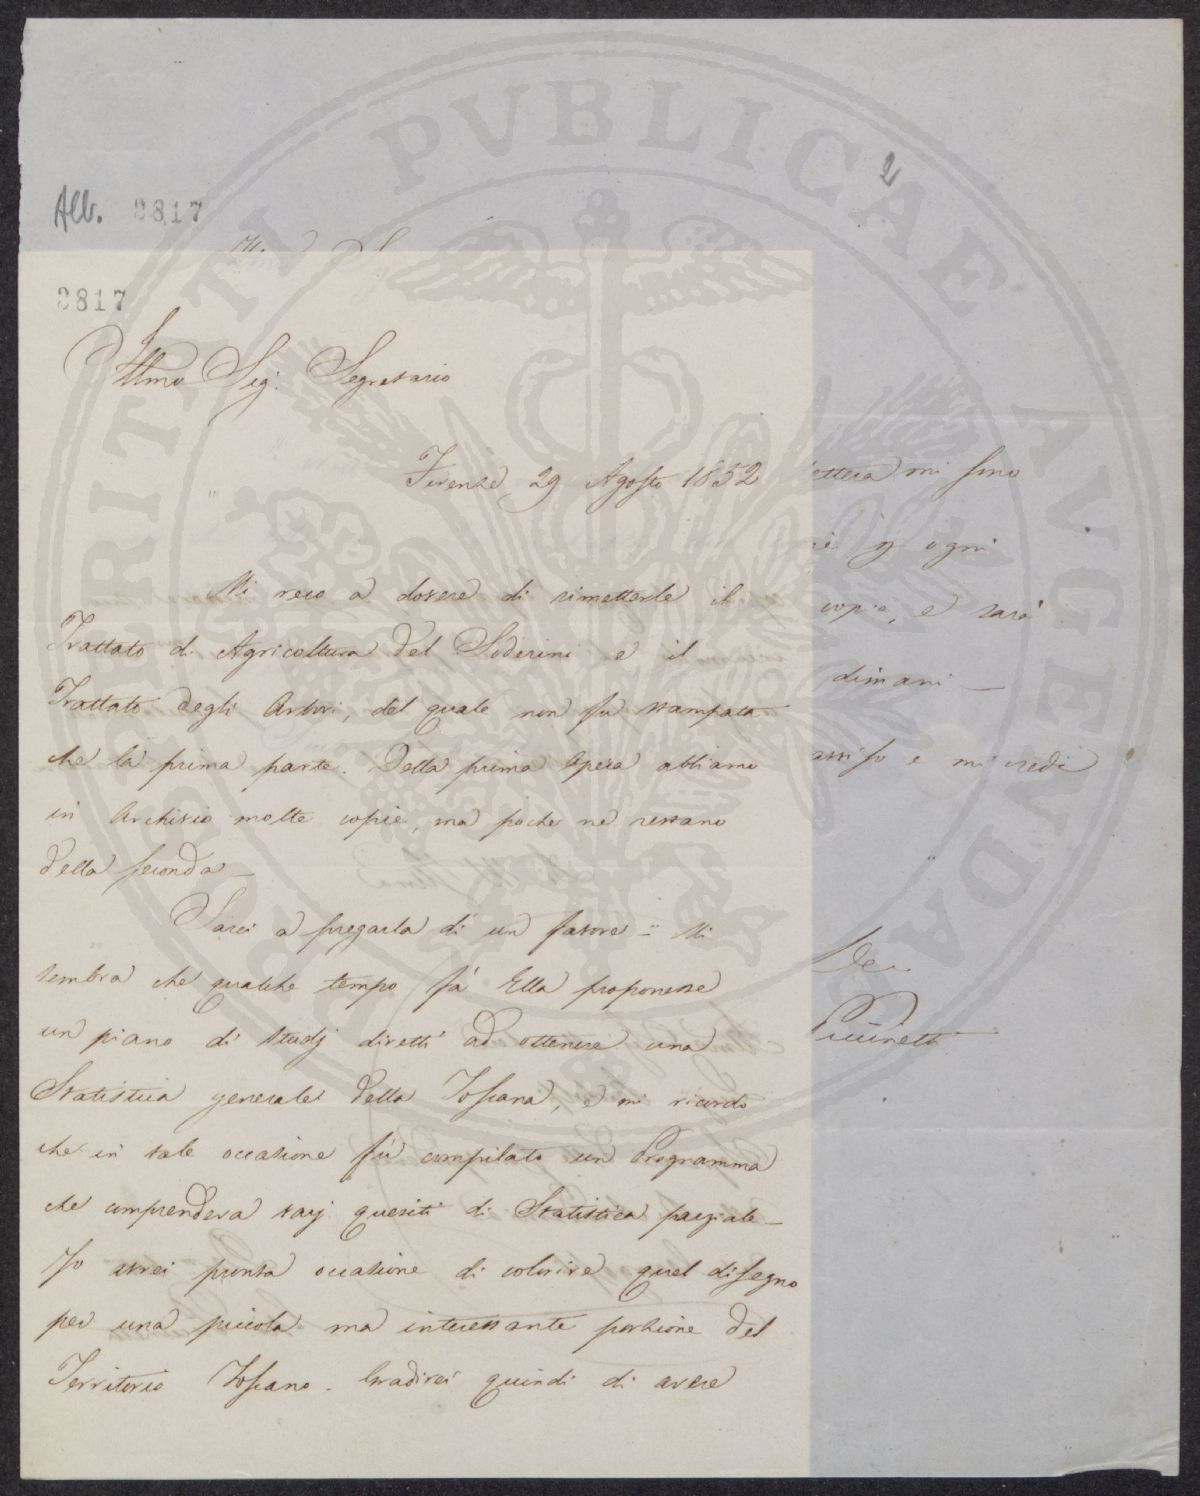 PROSPERITATI PVBLICAE AVGENDAE
2
All. 2817
2817
Illmo Sig.r Segretario
Firenze 29 Agosto 1852
Mi reco a dovere di rimetterle il
Trattato di Agricoltura del Soderini e il
Trattato degli Arbori, del quale non fu stampata
che la prima parte. Della prima Opera abbiamo
in Archivio molte copie, ma poche ne restano
della seconda —
Sarei a pregarla di un favore = Mi
sembra che qualche tempo fà Ella proponesse
un piano di Studj diretti ad ottenere una
Statistica generale della Toscana, e mi ricordo
che in tale occasione fù compilato un Programma
che comprendeva varj quesiti di Statistica parziale —
Io avrei pronta occasione di colorire quel disegno
per una piccola ma interessante porzione del
Territorio Toscano. Gradirei quindi di avere
lettera mi sono
ogni
copia, e sarà
dimani —
e mi credi
Dev.
Puccinetti